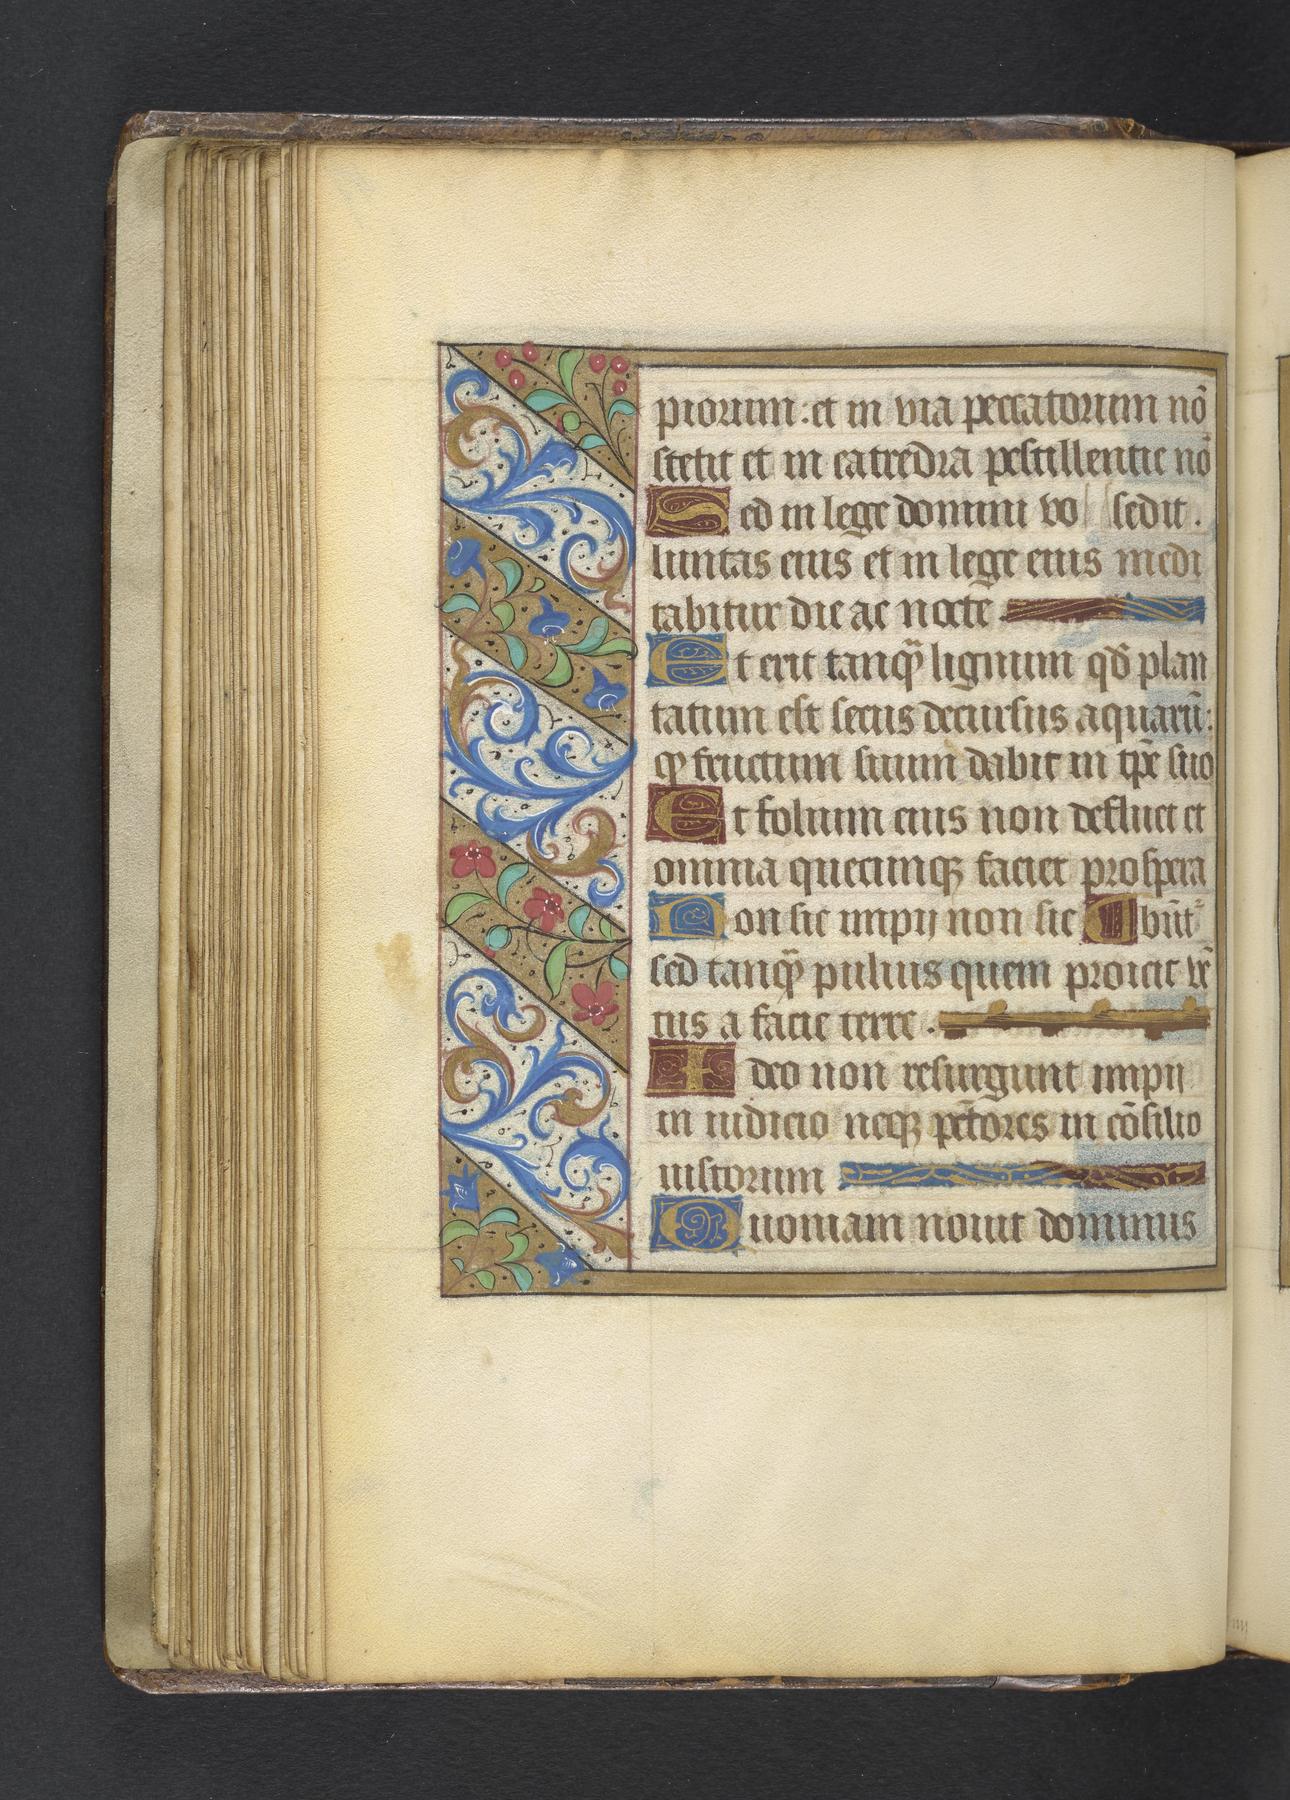 piorum: et in via peccatorum nō
stetit et in catredra pestillentie nō
Sed in lege domini vo sedit.
luntas eius et in lege eius medi
tabitur die ac nocte
Et erit tanqͣ lignum qđ plan
tatum est secus decursus aquarū:
qͥ fructum suum dabit in tp̄e suo
Et folium eius non defluet et
omnia quecunqꝫ faciet prospera
būt᷒
Non sic impij non sic
sed tanqͣ puluis quem proicit vē
tus a facie terre.
Ideo non resurgunt impij
in iudicio neqꝫ pctōres in cōsilio
iustorum
Quoniam nouit dominus